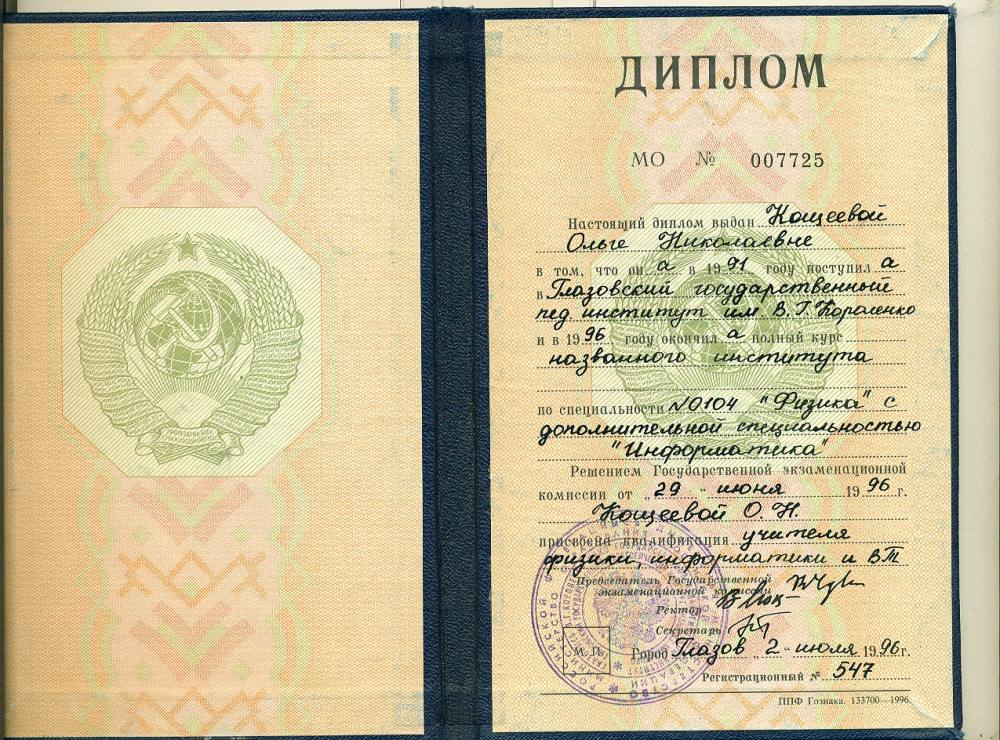 ДИПЛОМ
МО № 007725
Настоящий диплом выдан Кощеевой
Ольге Николаевне
в том, что он а в 1991 году поступил а
в Глазовский государственный
пед. институт им. В. Г. Короленко
и в 1996 году окончил а полный курс
названного института
по специальности №0104 "Физика" с
дополнительной специальностью
"Информатика"
Решением Государственной экзаменационной
комиссии от „29" июня 1996 г.
Кощеевой О. Н.
присвоена квалификация учителя
физики, информатики и ВТ
Председатель Государственной
экзаменационной комиссии
Ректор
Секретарь
М. П.
Город Глазов „2" июля 1996 г.
Регистрационный № 547
ППФ Гознака. 133700—1996.